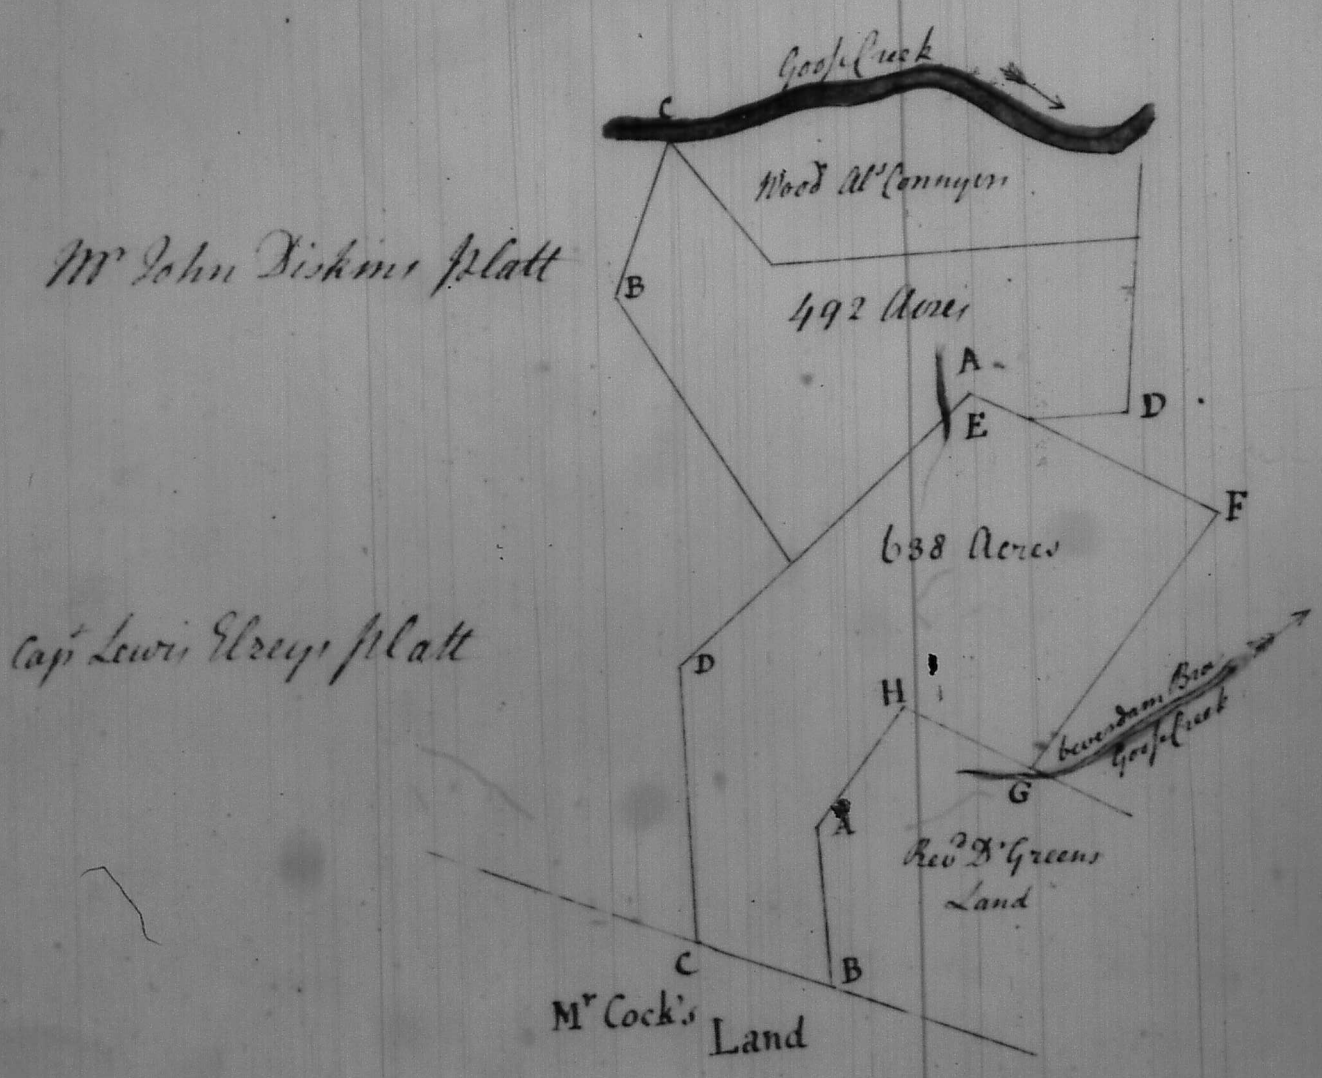 Goose Creek
C
Wood Als Connyers
Mr John Diskins platt
B
492 Acres
A
D
E
F
638 Acres
Capt Lewis Elzeys platt
D
H
beverdam Bra
Goose Creek
G
A
Revd Dr Greens
Land
C
B
Mr Cock's
Land